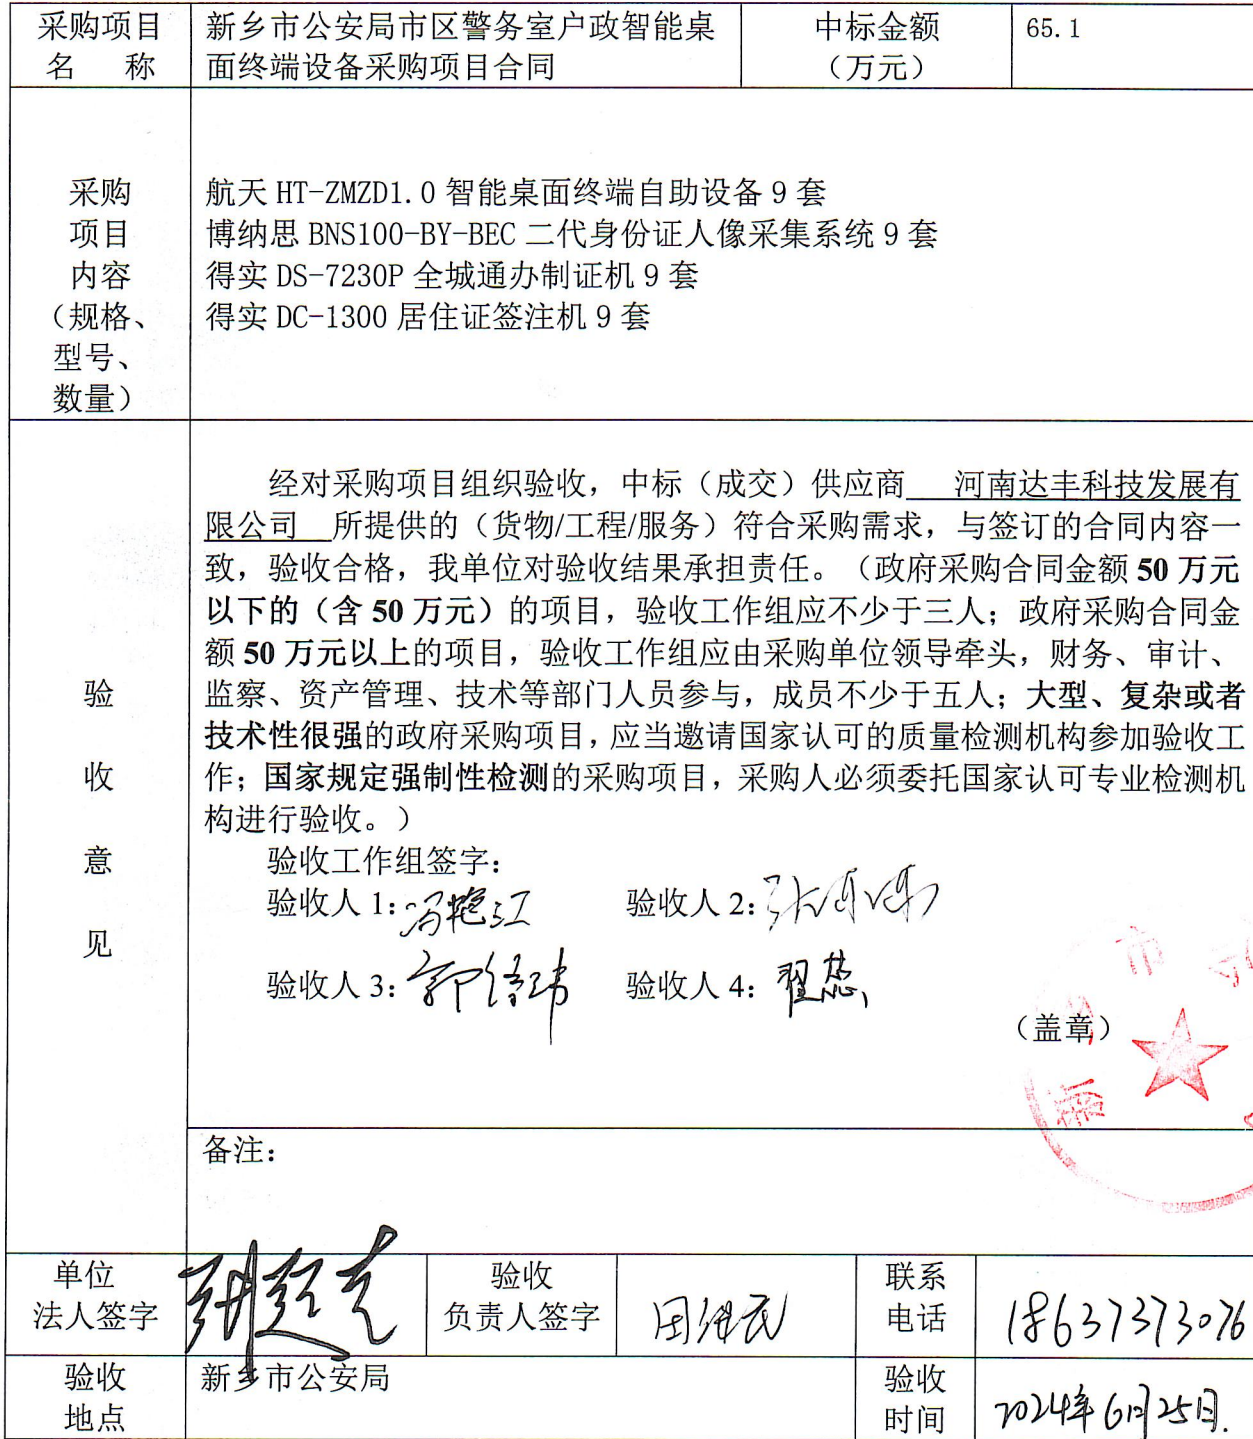 采购项目 新乡市公安局市区警务室户政智能桌 中标金额 65.1
名 称 面终端设备采购项目合同 （万元）
采购 航天 HT-ZMZD1.0 智能桌面终端自助设备 9 套
项目 博纳思 BNS100-BY-BEC 二代身份证人像采集系统 9 套
内容 得实 DS-7230P 全城通办制证机 9 套
（规格、 得实 DC-1300 居住证签注机 9 套
型号、
数量）
经对采购项目组织验收，中标（成交）供应商 河南达丰科技发展有
限公司 所提供的（货物/工程/服务）符合采购需求，与签订的合同内容一
致，验收合格，我单位对验收结果承担责任。（政府采购合同金额 50 万元
以下的（含 50 万元）的项目，验收工作组应不少于三人；政府采购合同金
额 50 万元以上的项目，验收工作组应由采购单位领导牵头，财务、审计、
验 监察、资产管理、技术等部门人员参与，成员不少于五人；大型、复杂或者
技术性很强的政府采购项目，应当邀请国家认可的质量检测机构参加验收工
收 作；国家规定强制性检测的采购项目，采购人必须委托国家认可专业检测机
构进行验收。）
意 验收工作组签字：
验收人 1：冯艳江 验收人 2：
见
验收人 3： 验收人 4：翟蕊
（盖章）
市
备注：
单位 验收 联系
法人签字 负责人签字 电话 18637373076
验收 新乡市公安局 验收
地点 时间 2024年6月25日.